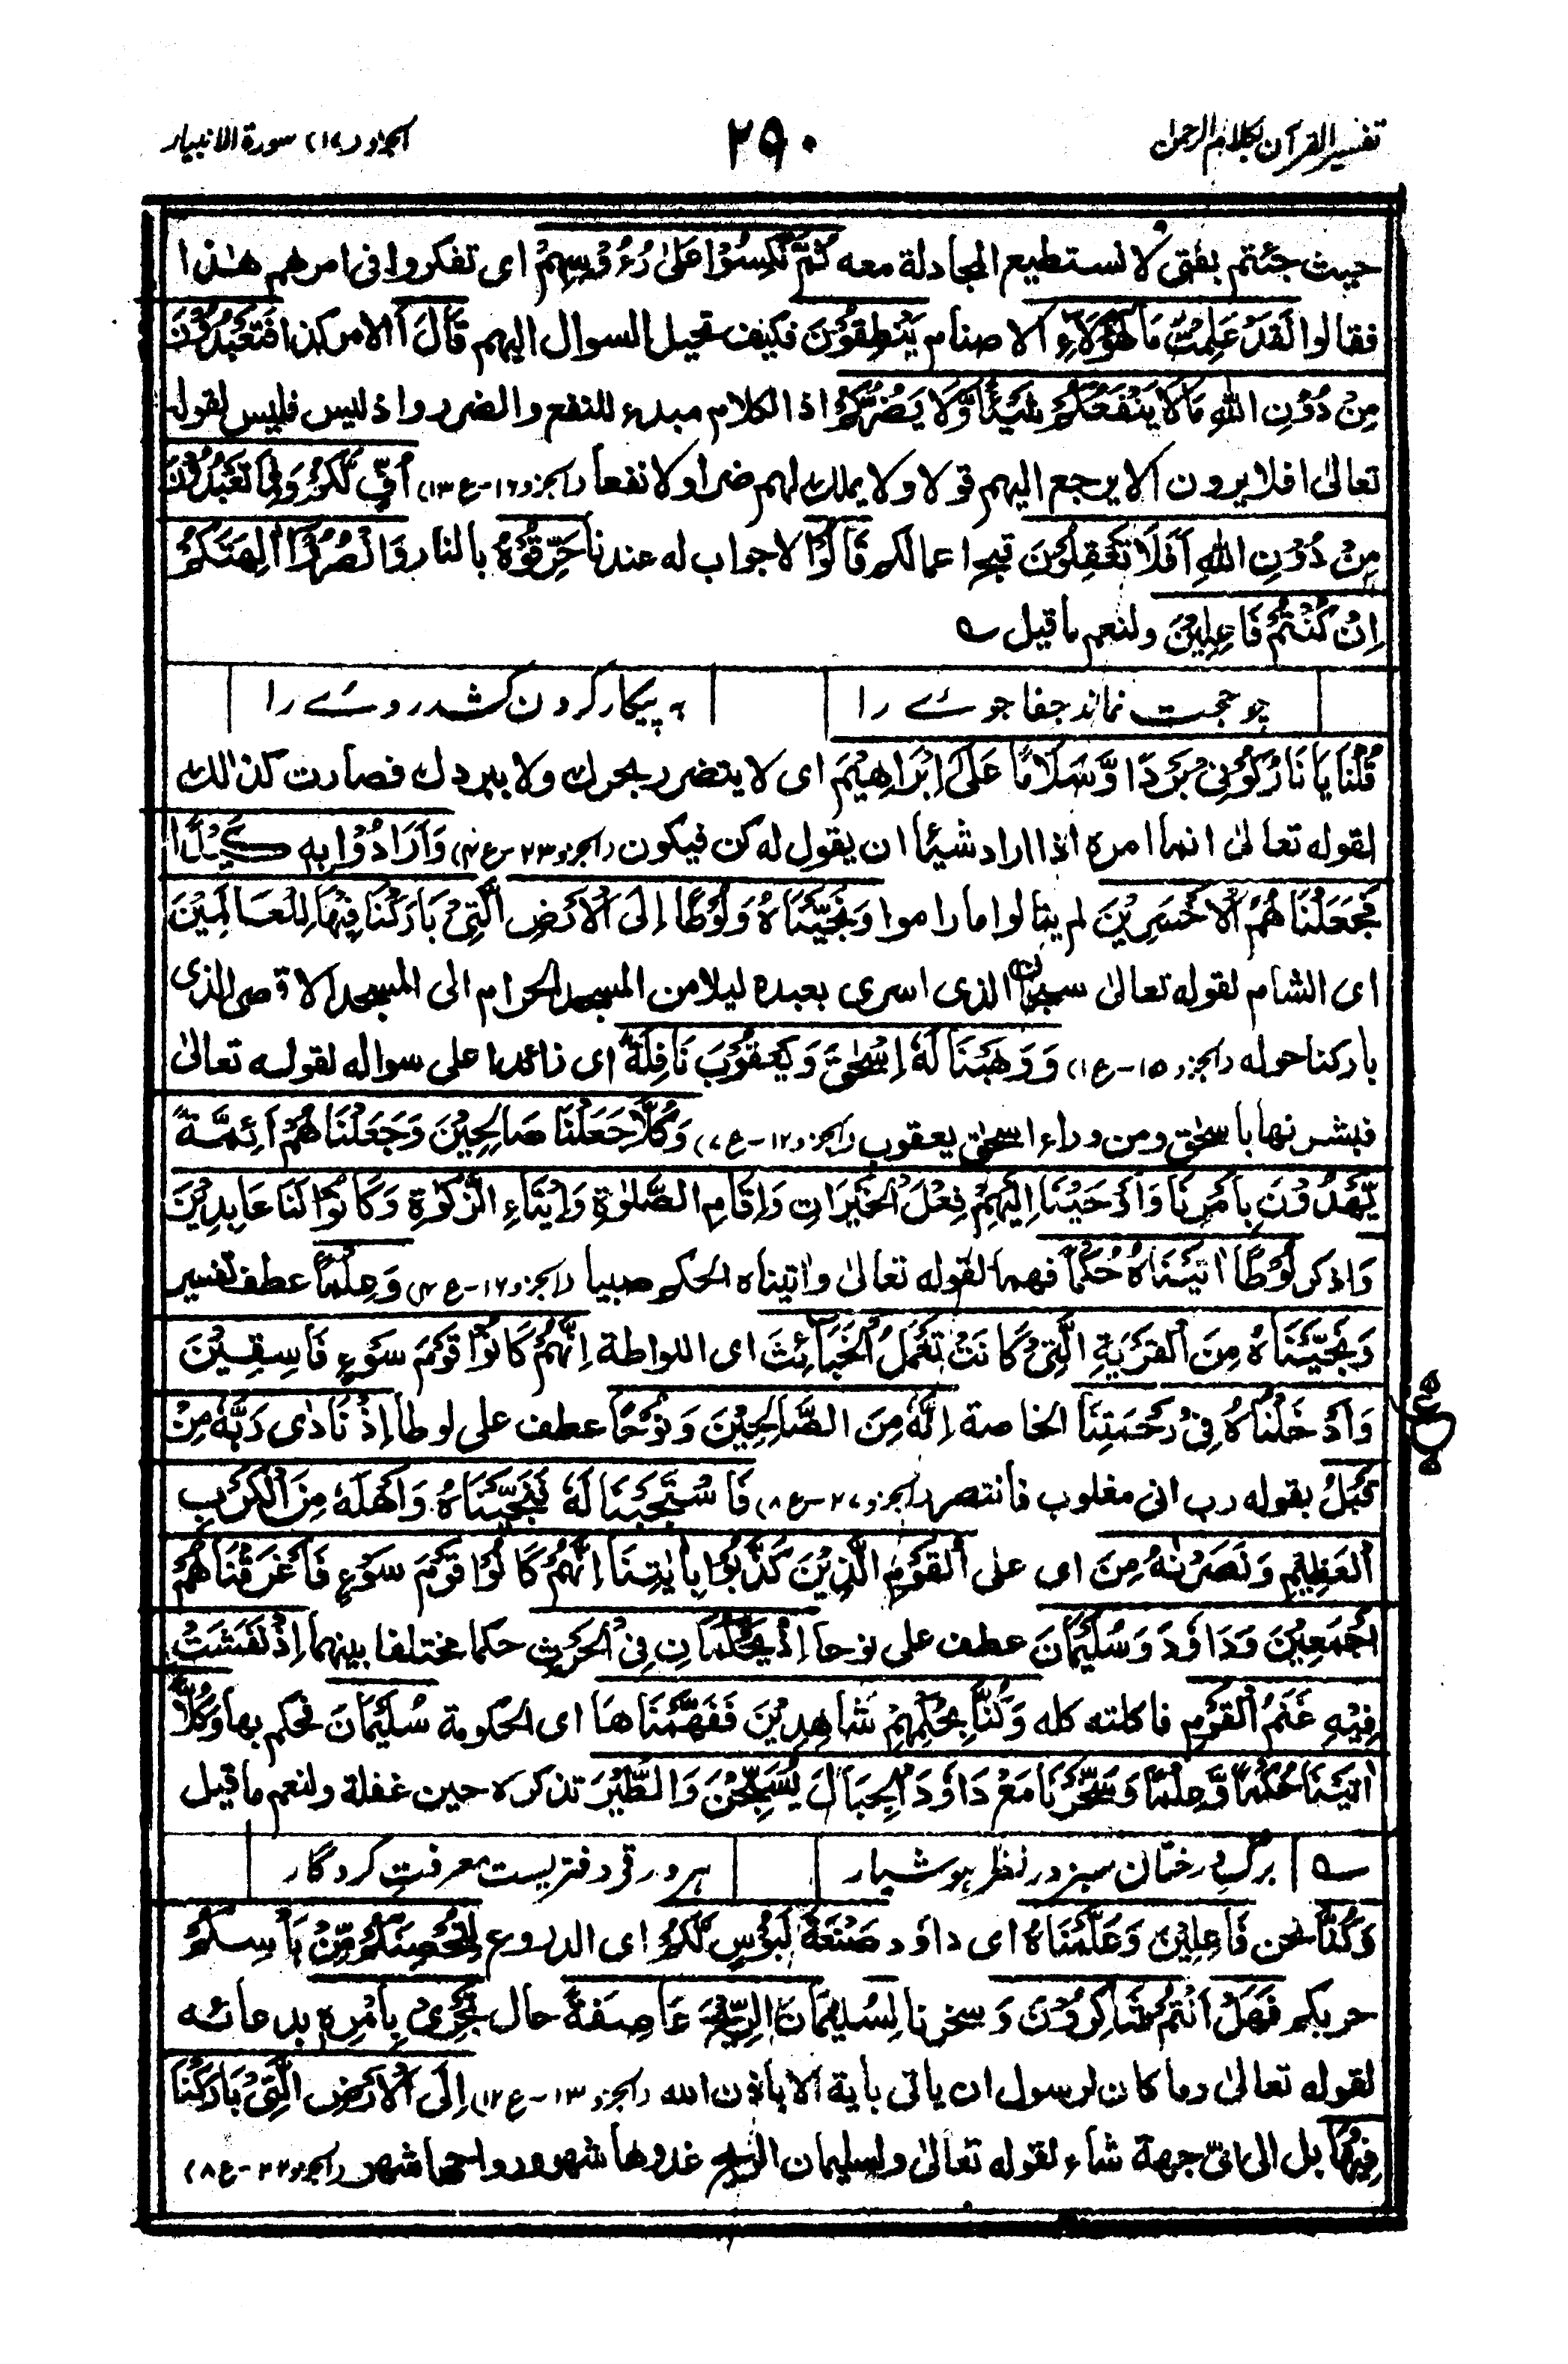 تفسیر القرآن بکلام الرحمن
۲۹۰
الجزء (۱۷) سورۃ الانبیاء
حیث جئتم بفتی لا نستطیع المجادلة معه ثُمَّ نُكِسُوْا عَلٰى رُءُوْسِهِمْ ای تفکروا فی امرهم هٰذا
فقالوا لَقَدْ عَلِمْتَ مَا هٰٓؤُلَاءِ الاصنام يَنْطِقُوْنَ فکیف تحیل السوال الیهم قَالَ أ الامر کذا فَتَعْبُدُوْنَ
مِنْ دُوْنِ اللّٰهِ مَا لَا يَنْفَعُكُمْ شَيْئًا وَّلَا يَضُرُّكُمْ اذ الکلام مبدء للنفع والضرر واذ لیس فلیس لقوله
تعالیٰ افلا یرون الا یرجع الیهم قولا ولا یملک لهم ضرا ولا نفعا (الجزء ۱۶-ع ۱۳) اُفٍّ لَّكُمْ وَلِمَا تَعْبُدُوْنَ
مِنْ دُوْنِ اللّٰهِ أَفَلَا تَعْقِلُوْنَ قبح اعمالکم قَالُوْا لا جواب له عندنا حَرِّقُوْهُ بالنار وَانْصُرُوْٓا اٰلِهَتَكُمْ
اِنْ كُنْتُمْ فَاعِلِيْنَ ولنعم ما قیل ؎
چو حجت نماند جفا جوئے را
بہ پیکار کردن کشد روئے را
قُلْنَا يَا نَارُ كُوْنِيْ بَرْدًا وَّسَلَامًا عَلٰٓى اِبْرَاهِيْمَ ای لا یتضرر بحرک ولا ببردک فصارت کذالک
لقوله تعالیٰ انما امره اذا اراد شیئا ان یقول له کن فیکون (الجزء ۲۳-ع ۴) وَاَرَادُوْا بِهٖ كَيْدًا
فَجَعَلْنَا هُمُ الْاَخْسَرِيْنَ لم ینالوا ما راموا وَنَجَّيْنَاهُ وَلُوْطًا اِلَى الْاَرْضِ الَّتِيْ بَارَكْنَا فِيْهَا لِلْعَالَمِيْنَ
ای الشام لقوله تعالیٰ سبحان الذی اسری بعبده لیلا من المسجد الحرام الی المسجد الاقصی الذی
بارکنا حوله (الجزء ۱۵-ع ۱) وَوَهَبْنَا لَهٗ اِسْحٰقَ وَيَعْقُوْبَ نَافِلَةً ای زائدا علی سواله لقوله تعالیٰ
فبشرنها باسحٰق ومن وراء اسحٰق یعقوب (الجزء ۱۲-ع ۷) وَكُلًّا جَعَلْنَا صَالِحِيْنَ وَجَعَلْنَا هُمْ اَئِمَّةً
يَّهْدُوْنَ بِاَمْرِنَا وَاَوْحَيْنَا اِلَيْهِمْ فِعْلَ الْخَيْرَاتِ وَاِقَامِ الصَّلٰوةِ وَاِيْتَاءِ الزَّكٰوةِ وَكَانُوْا لَنَا عَابِدِيْنَ
وَاذکر لُوْطًا اٰتَيْنَاهُ حُكْمًا فهما لقوله تعالیٰ واٰتیناه الحکم صبیا (الجزء ۱۶-ع ۴) وَعِلْمًا عطف تفسیر
وَنَجَّيْنَاهُ مِنَ الْقَرْيَةِ الَّتِيْ كَانَتْ تَعْمَلُ الْخَبَائِثَ ای اللواطة اِنَّهُمْ كَانُوْا قَوْمَ سَوْءٍ فَاسِقِيْنَ
وَاَدْخَلْنَاهُ فِيْ رَحْمَتِنَا الخاصة اِنَّهٗ مِنَ الصَّالِحِيْنَ وَنُوْحًا عطف علی لوطا اِذْ نَادٰى رَبَّهٗ مِنْ
ع
۵
قَبْلُ بقوله رب انی مغلوب فانتصر (الجزء ۲۷-ع ۸) فَاسْتَجَبْنَا لَهٗ فَنَجَّيْنَاهُ وَاَهْلَهٗ مِنَ الْكَرْبِ
الْعَظِيْمِ وَنَصَرْنٰهُ مِنَ ای علی الْقَوْمِ الَّذِيْنَ كَذَّبُوْا بِاٰيٰتِنَا اِنَّهُمْ كَانُوْا قَوْمَ سَوْءٍ فَاَغْرَقْنَا هُمْ
اَجْمَعِيْنَ وَدَاوٗدَ وَسُلَيْمَانَ عطف علی نوحا اِذْ يَحْكُمَانِ فِي الْحَرْثِ حکما مختلفا بینهما اِذْ نَفَشَتْ
فِيْهِ غَنَمُ الْقَوْمِ فاکلته کله وَكُنَّا بِحُكْمِهِمْ شَاهِدِيْنَ فَفَهَّمْنَاهَا ای الحکومة سُلَيْمَانَ فحکم بها وَكُلًّا
اٰتَيْنَا حُكْمًا وَّعِلْمًا وَسَخَّرْنَا مَعَ دَاوٗدَ الْجِبَالَ يُسَبِّحْنَ وَالطَّيْرَ تذکره حین غفلة ولنعم ما قیل
؎ برگ درختان سبز در نظر ہوشیار
ہر ورقے دفتریست معرفت کردگار
وَكُنَّا نحن فَاعِلِيْنَ وَعَلَّمْنَاهُ ای داؤد صَنْعَةَ لَبُوْسٍ لَّكُمْ ای الدروع لِتُحْصِنَكُمْ مِّنْ بَأْسِكُمْ
حربکم فَهَلْ اَنْتُمْ شَاكِرُوْنَ وَ سخرنا لِسُلَيْمَانَ الرِّيْحَ عَاصِفَةً حال تَجْرِيْ بِاَمْرِهٖ بدعائه
لقوله تعالیٰ وما کان لرسول ان یاتی باٰیة الا باذن الله (الجزء ۱۳-ع ۱۲) اِلَى الْاَرْضِ الَّتِيْ بَارَكْنَا
فِيْهَا بل الی ائّ جهة شاء لقوله تعالیٰ ولسلیمان الریح غدوها شهر ورواحها شهر (الجزء ۲۲-ع ۸)